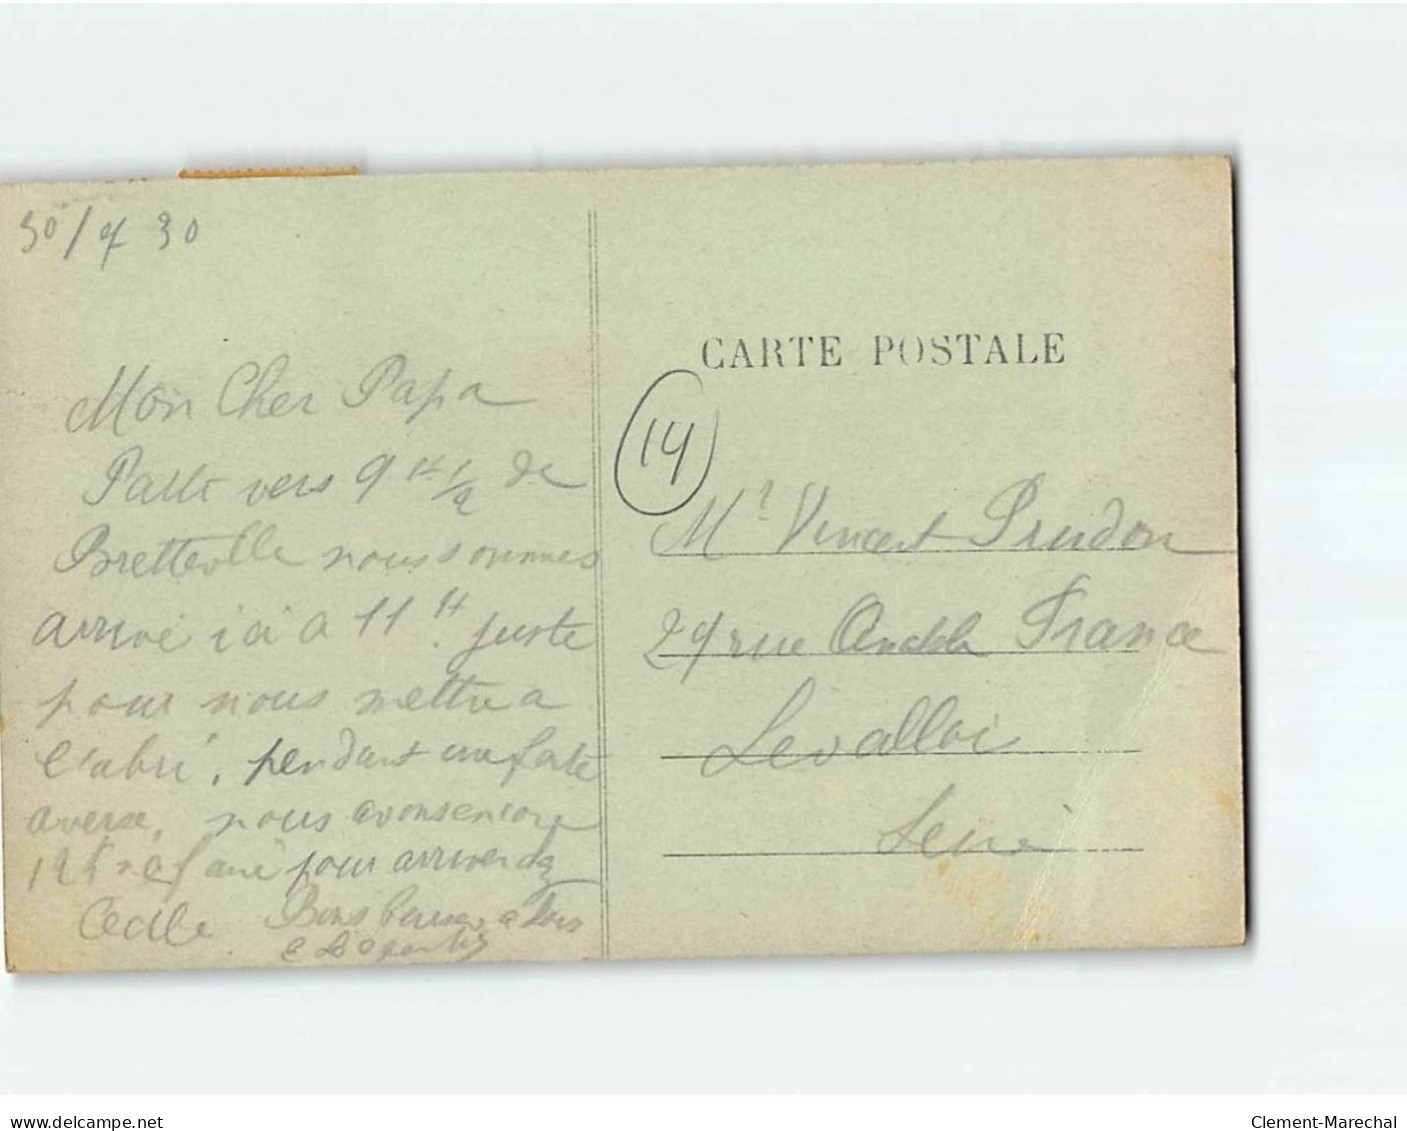 30/7 30
Mon Cher Papa
Parti vers 9 H 1/2 de
Bretteville nous sommes
arrivé ici a 11 H. juste
pour nous mettre a
l'abri, pendant une forte
averse, nous avons encore
pour arriver
Cecile. Bons baisers a Tous
CARTE POSTALE
14
Mr Vincent Prudon
29 rue Anatole France
Levalloi
Seine
www.delcampe.net
Clement-Marechal